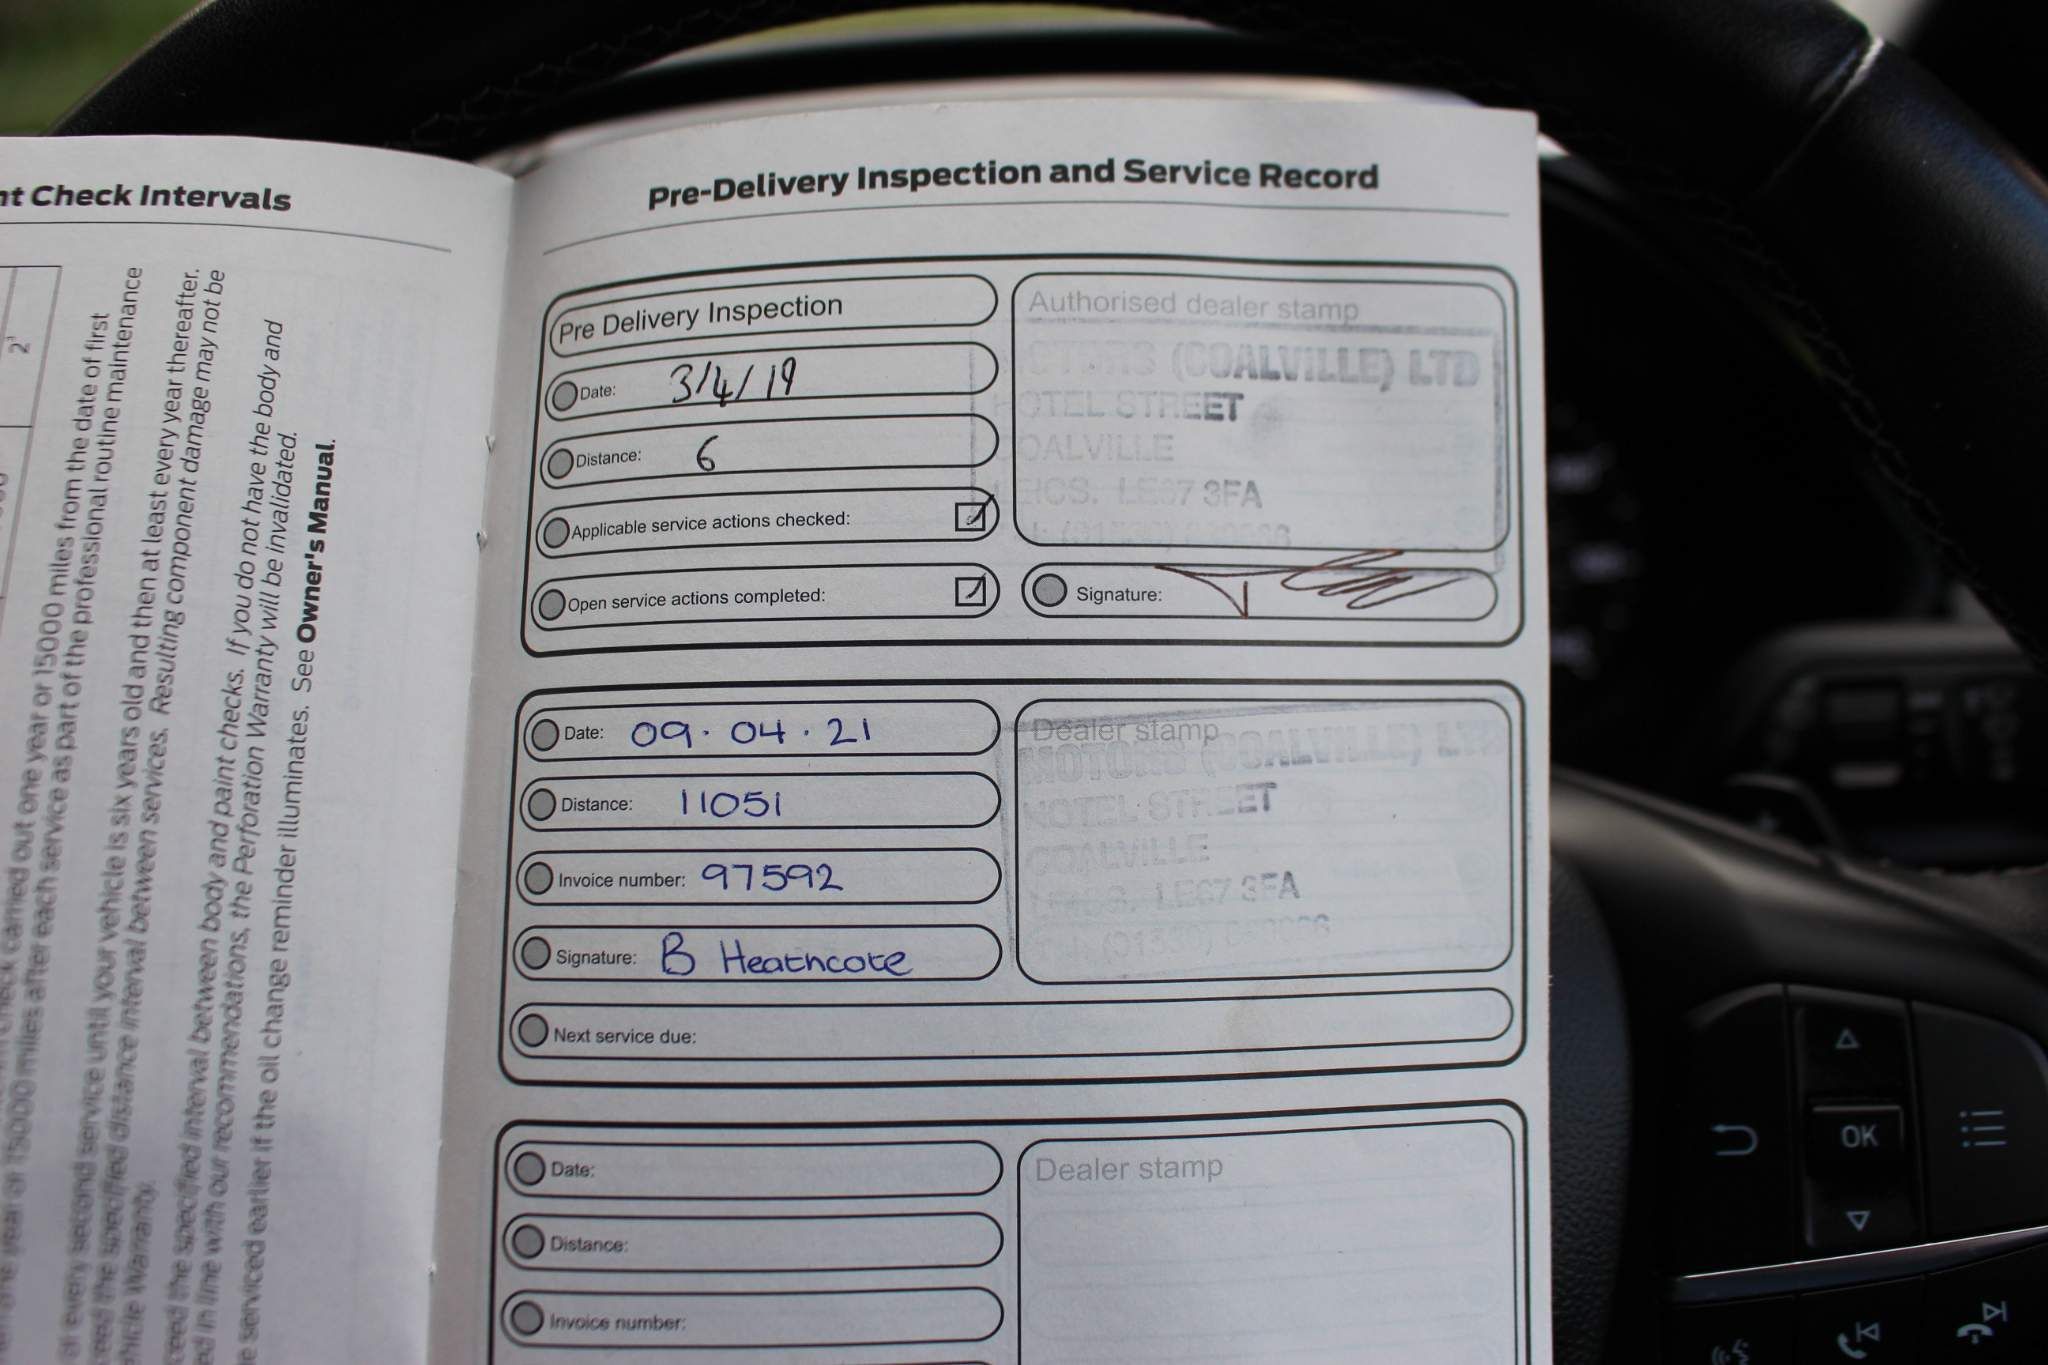 nt Check Intervals
check carried out one year or 15000 miles from the date of first
one year or 15000 miles after each service as part of the professional routine maintenance
at every second service until your vehicle is six years old and then at least every year thereafter.
the specified distance interval between services. Resulting component damage may not be
Warranty.
the specified interval between body and paint checks. If you do not have the body and
ed in line with our recommendations, the Perforation Warranty will be invalidated.
serviced earlier if the oil change reminder illuminates. See Owner's Manual.
Pre-Delivery Inspection and Service Record
Pre Delivery Inspection
Date: 3/4/19
Distance: 6
Applicable service actions checked:
Open service actions completed:
Authorised dealer stamp
(COALVILLE) LTD
HOTEL STREET
COALVILLE
LEICS. LE67 3FA
Signature:
Date: 09.04.21
Distance: 11051
Invoice number: 97592
Signature: B Heathcote
Next service due:
Dealer stamp
MOTORS (COALVILLE) LTD
HOTEL STREET
COALVILLE
LEICS. LE67 3FA
Date:
Distance:
Invoice number:
Dealer stamp
OK